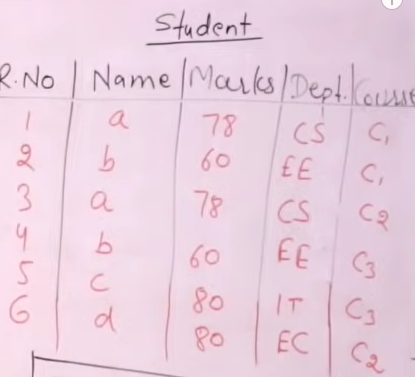 Student
R.No | Name | Marks | Dept. | Course
1 a 78 CS C1
2 b 60 EE C1
3 a 78 CS C2
4 b 60 EE C3
5 c 80 IT C3
6 d 80 EC C2